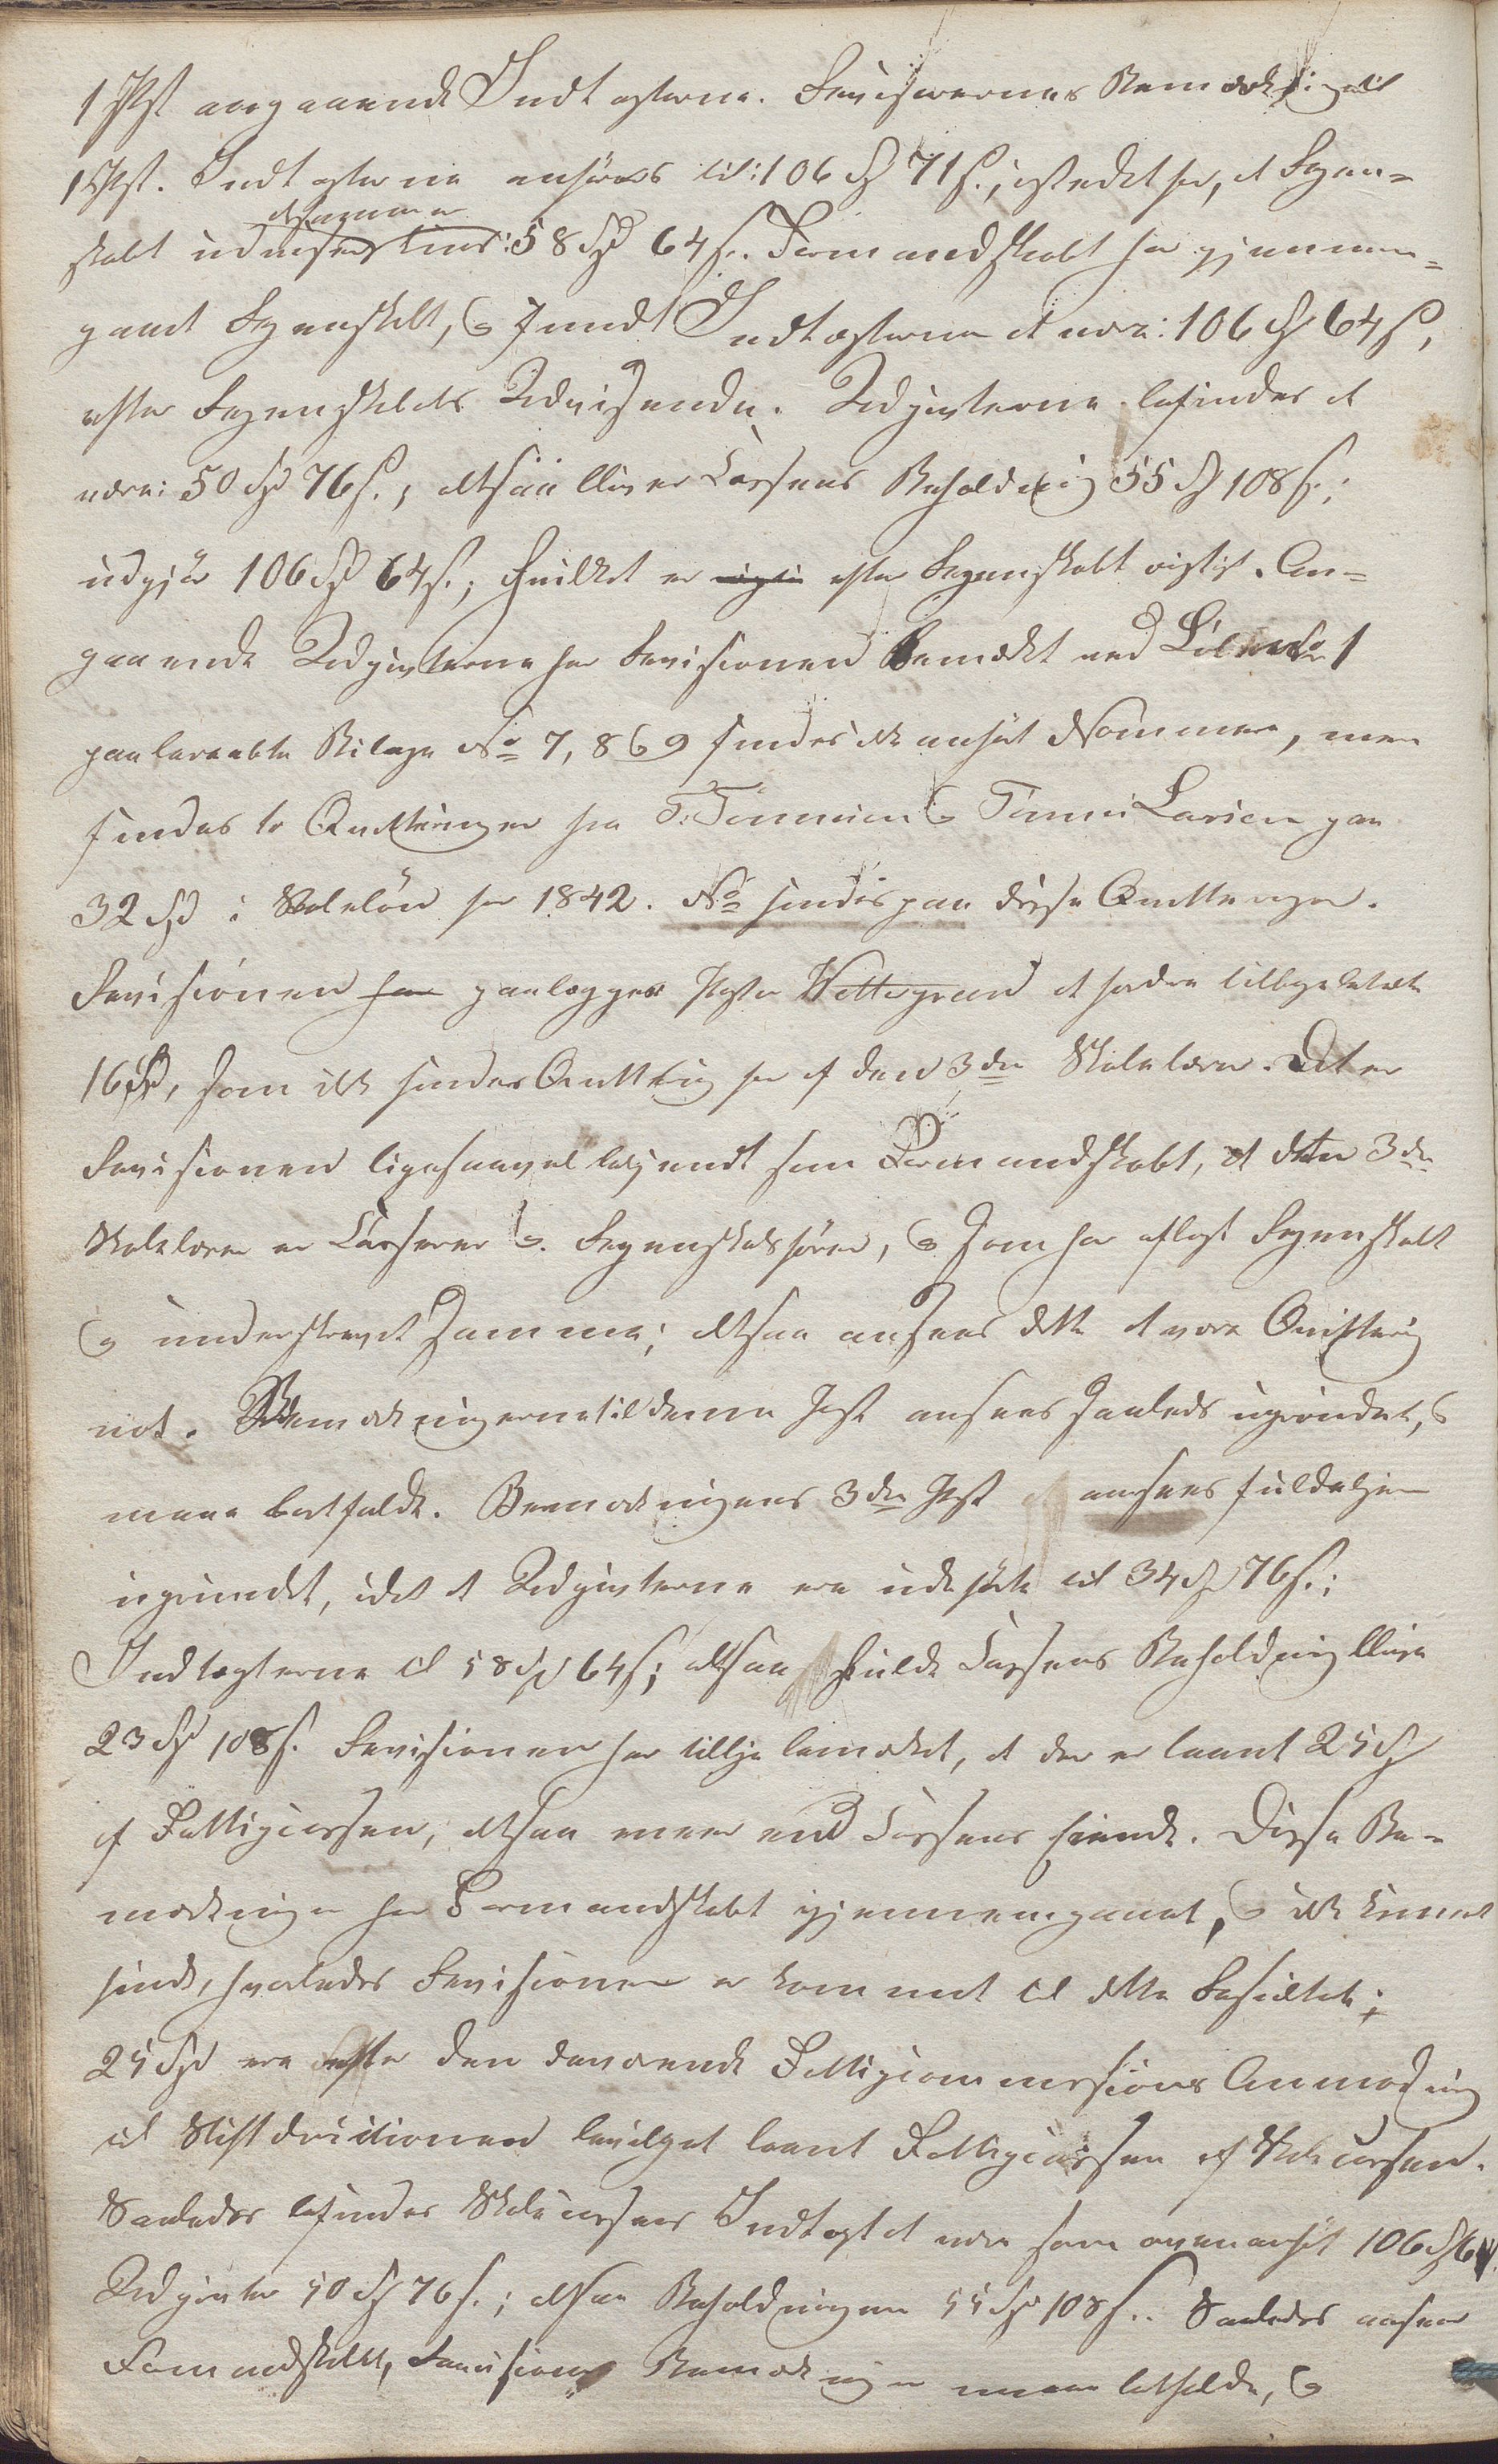 1 Post angaaende Indtægterne. Revisorernes Bemærkning til
1 Post. Indtægterne anføres til: 106 Spd 71 s., istedetfor, at Regn-
skabet udviser kuns: 58 Spd 64 s. Formandskabet har gjennem-
gaaet Regnskabet, og fundet Indtægterne at være: 106 Spd 64 s,
efter Regnskabets Udvisende. Udgivterne befindes at
være: 50 Spd 76 s., altsaa bliver Cassens Beholdning 55 Spd 108 s.;
udgjør 106 Spd 64 s.; hvilket er efter Regnskabet rigtigt. An-
gaaende Udgivterne har Revisionen Bemærket ved 1
paaberaabte Bilage No 7, 8 og 9 findes ikke anført Nommere, men
findes to Quitteringer fra T. Tønnisen og Tønnis Larsen paa
32 Spd i Skoleløn for 1842. No findes paa disse Quitteringer.
Revisionen paalægger Peder Wettegreen at fordre tilbagebetalt
16 Spd, som ikke findes Quittering for af den 3die Skolelærer. Det er
Revisionen ligesaavel bekjendt som Formandskabet, at den 3die
Skolelærer er Casserer og Regnskabsfører, og som har aflagt Regnskabet
og underskrevet samme; altsaa ansees dette at være Quittering
nok. Bemærkningerne til denne Post ansees saaledes ugrundet, og
maae bortfalde. Bemærkningens 3die Post ansees fuldkommen
ugrundet, idet at Udgivterne ere udførte til 34 Spd 76 s.;
Indtægterne til 58 Spd 64 s; altsaa skulde Cassens Beholdning blive
23 Spd 108 s. Revisionen har tillige bemærket, at der er laant 25 Spd
af Fattigcassen, altsaa meer end Cassens eiende. Disse Be-
mærkninger har Formandskabet gjennemgaaet, og ikke kunnet
finde, hvorledes Revisionen er kommet til dette Resultat;
25 Spd ere efter den daværende Fattigcommissions Anmodning
til Stiftdirectionen bevilget laant Fattigcassen af Skolecassen.
Saaledes befindes Skolecassens Indtægt at være som ovenanført 106 Spd 64
Udgivter 50 Spd 76 s.; altsaa Beholdningen 55 Spd 108 s. Saaledes anseer
Formandskabet, Revisionens Bemærkninger maae bortfalde, og